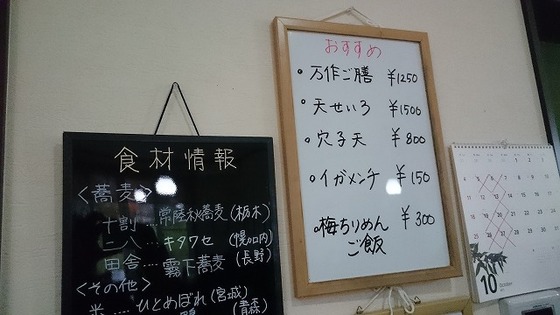 食材情報
<蕎麦>
十割…常陸秋蕎麦(栃木)
二八…キタワセ(幌加内)
田舎…霧下蕎麦(長野)
<その他>
米……ひとめぼれ(宮城)
鴨(青森)
おすすめ
・万作ご膳 ¥1250
・天せいろ ¥1500
・穴子天 ¥800
・イガメンチ ¥150
・梅ちりめん
ご飯 ¥300
10